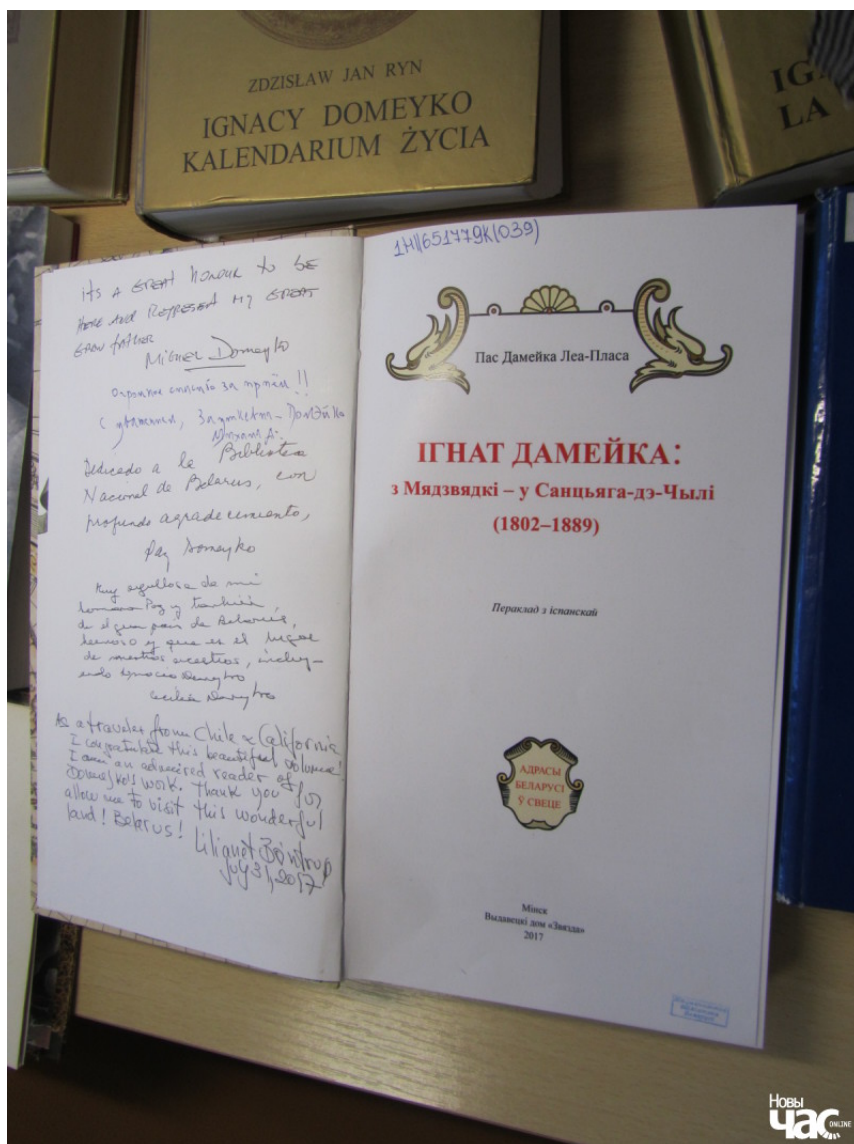 ZDZISŁAW JAN RYN
IGNACY DOMEYKO
KALENDARIUM ŻYCIA
IG
LA
its A GREAT HONOUR to BE
HERE AND REPRESENT MY GREAT
GRAN fATHER
Miguel Domeyko
Огромное спасибо за приём !!
с уважением,
Dedicado a la Biblioteca
Nacional de Belarus, con
profundo agradecimiento,
Paz Domeyko
Muy orgullosa de mi
hermana Paz y también
de el gran país de Belarus,
hermoso y que es el lugar
de nuestros ancestros, inclu-
endo Ignacio Domeyko
Cecilia Domeyko
As a traveler from Chile & California
I congratulate this beautiful volume!
I am an admired reader of
Domeyko's work. Thank you for
allow me to visit this wonderful
land! Belarus!
July 31, 2017
1Н//651779К(039)
Пас Дамейка Леа-Пласа
ІГНАТ ДАМЕЙКА:
з Мядзвядкі – у Санцьяга-дэ-Чылі
(1802–1889)
Пераклад з іспанскай
АДРАСЫ
БЕЛАРУСІ
Ў СВЕЦЕ
Мінск
Выдавецкі дом «Звязда»
2017
Новы
час
ONLINE